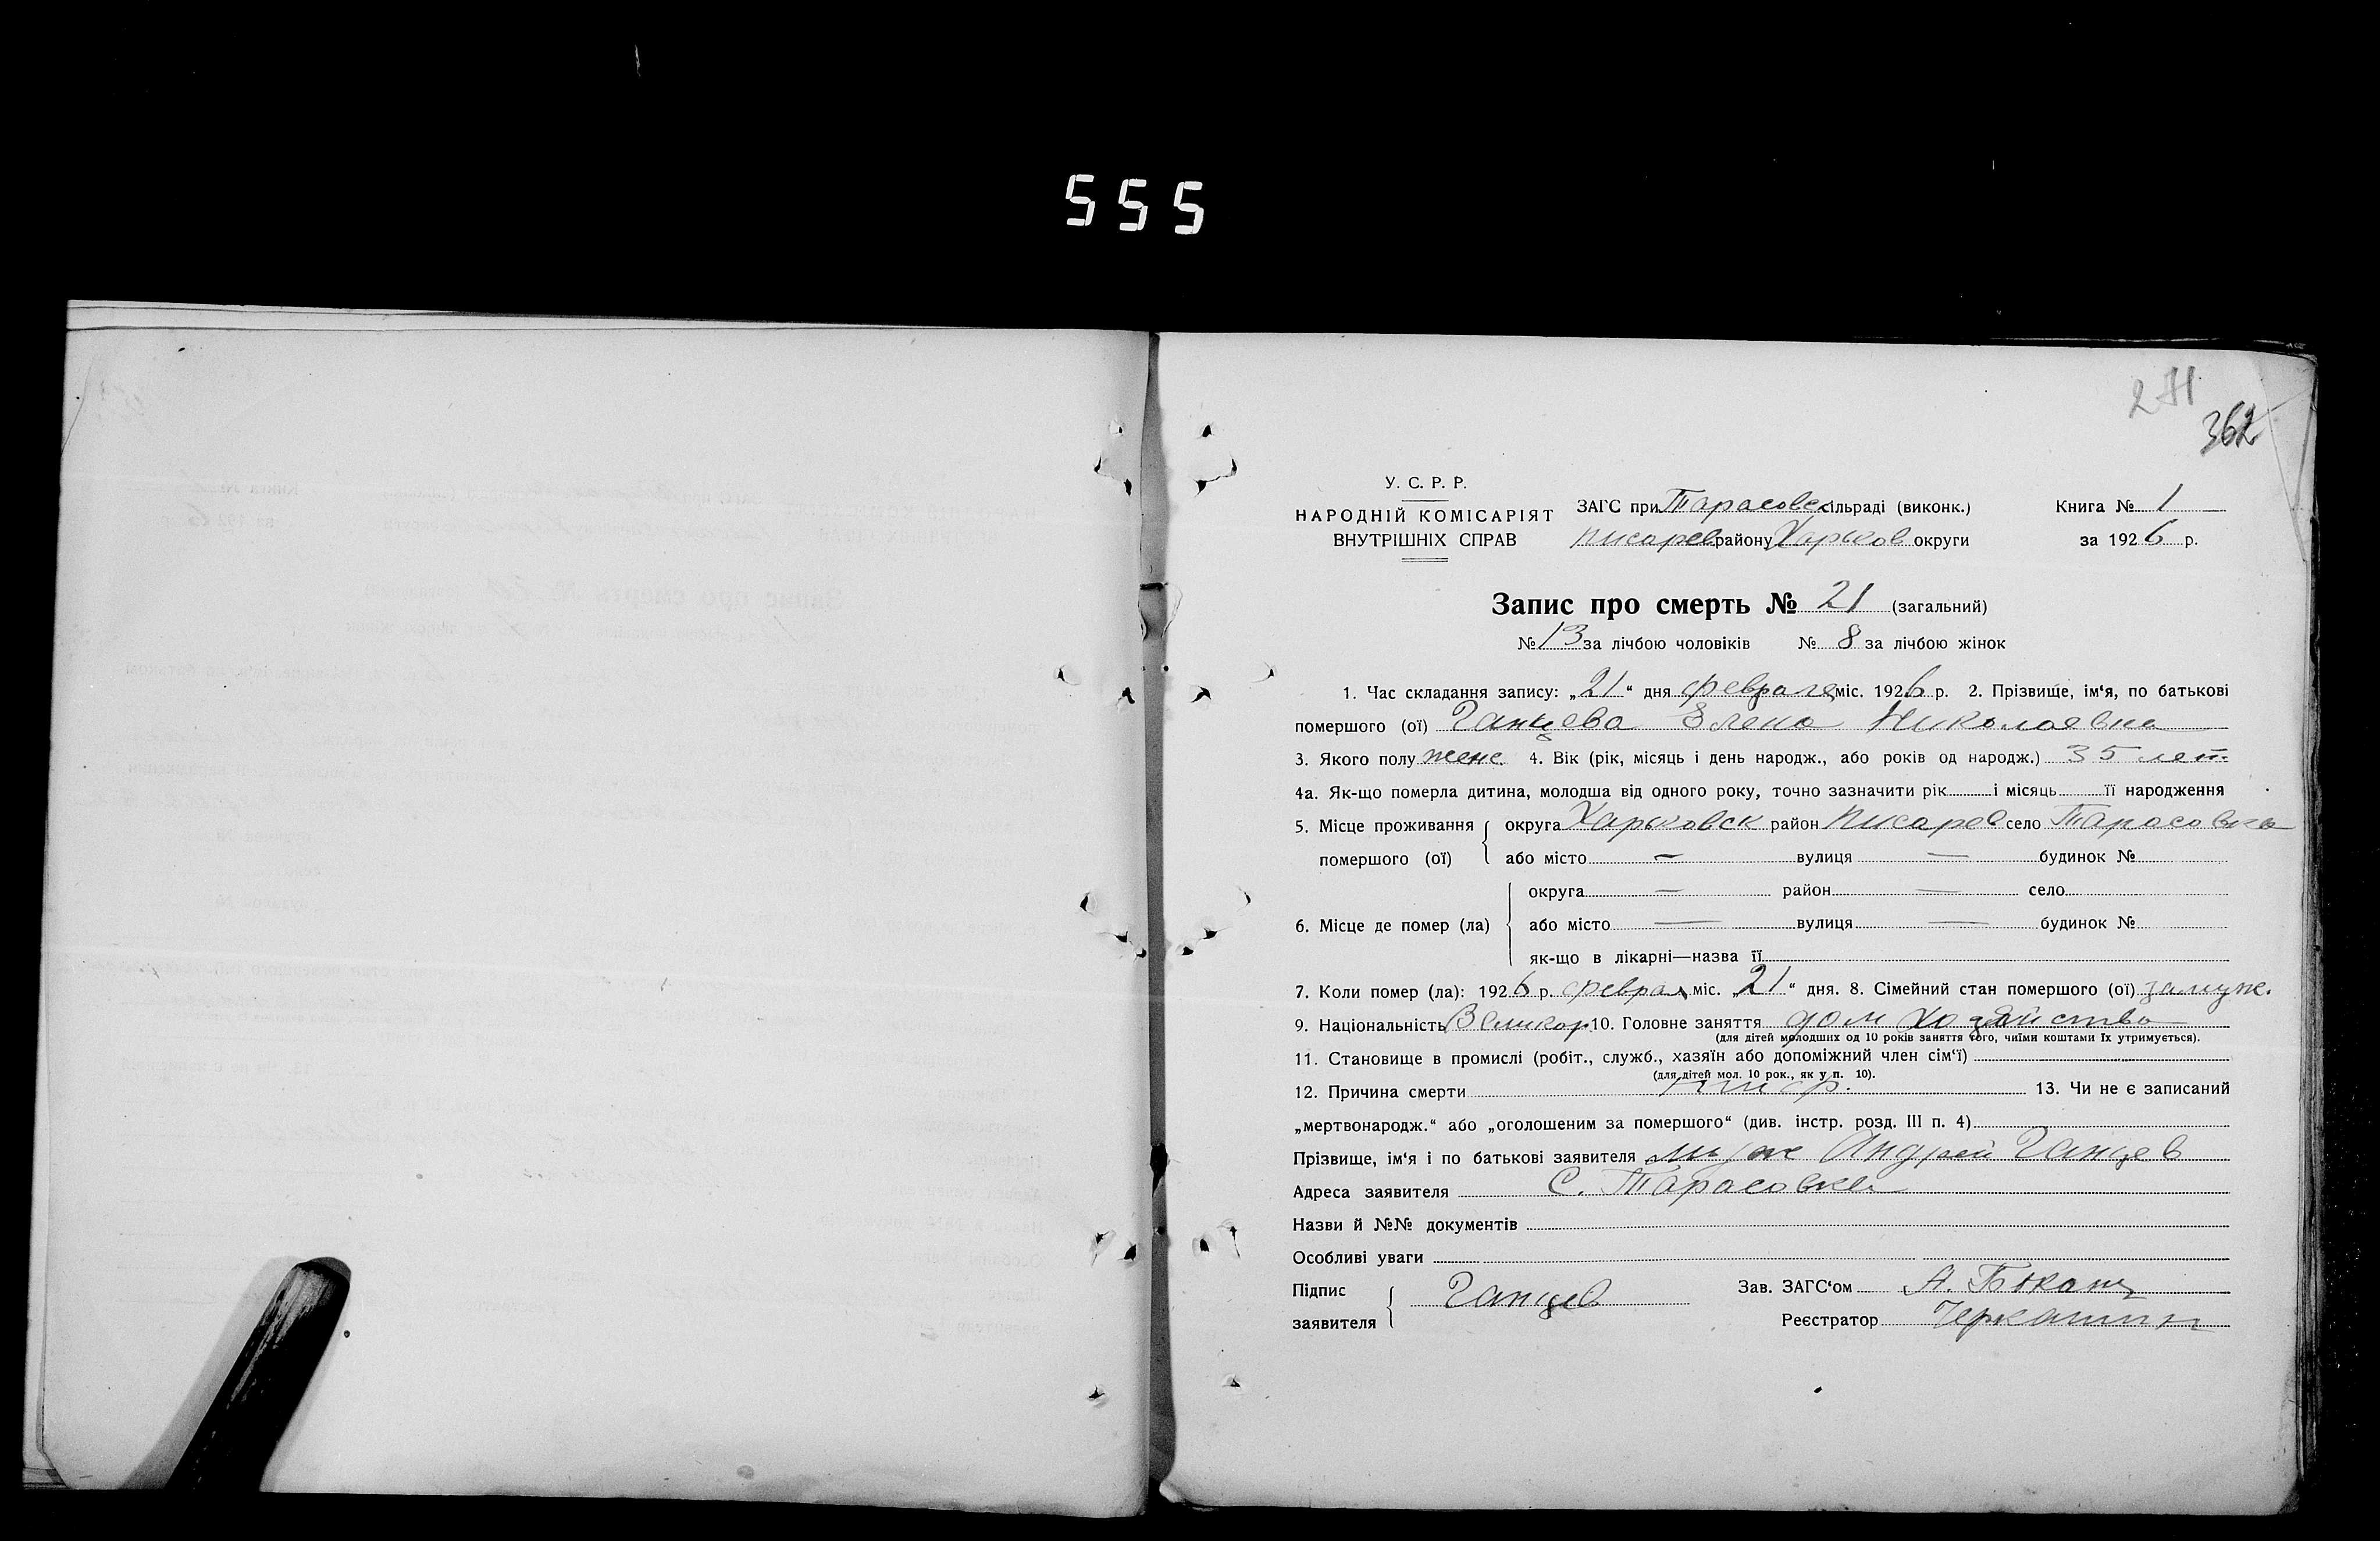 555
271
362
У. С. Р. Р.
НАРОДНІЙ КОМІСАРІЯТ
ВНУТРІШНІХ СПРАВ
ЗАГС при Тарасовск сільраді (виконк.)
Писарев району Харьков округи
Книга № 1
за 1926 р.
Запис про смерть № 21 (загальний)
№ 13 за лічбою чоловіків № 8 за лічбою жінок
1. Час складання запису: „21“ дня февраля міс. 1926 р. 2. Прізвище, ім‘я, по батькові
помершого (ої) Ганцева Елена Николаевна
3. Якого полу женс 4. Вік (рік, місяць і день народж., або років од народж.) 35 лет.
4а. Як-що померла дитина, молодша від одного року, точно зазначити рік і місяць її народження
5. Місце проживання помершого (ої) { округа Харьковск район Писарев село Тарасовка
або місто — вулиця — будинок №
6. Місце де помер (ла) { округа — район — село
або місто — вулиця — будинок №
як-що в лікарні—назва її
7. Коли помер (ла): 1926 р. феврал міс. „21“ дня. 8. Сімейний стан помершого (ої) замуж.
9. Національність Великор 10. Головне заняття дом хозяйство
(для дітей молодших од 10 років заняття того, чиїми коштами їх утримується).
11. Становище в промислі (робіт., служб., хазяїн або допоміжний член сім‘ї)
(для дітей мол. 10 рок., як у п. 10).
12. Причина смерти 13. Чи не є записаний
„мертвонародж.“ або „оголошеним за помершого“ (див. інстр. розд. III п. 4)
Прізвище, ім‘я і по батькові заявителя муж Андрей Ганцев
Адреса заявителя С. Тарасовка
Назви й №№ документів
Особливі уваги
Підпис заявителя { Ганцев
Зав. ЗАГС‘ом А.
Реєстратор Черкашин